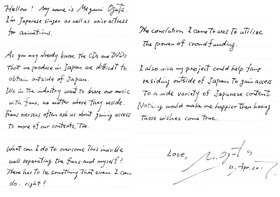 Hello! My name is Megumi Ogata.
I'm Japanese singer as well as voice actress
for animations.
As you may already know, the CDs and DVDs
that we produce in Japan are difficult to
obtain outside of Japan.
We in the industry want to share our music
with fans, no matter where they reside.
Fans oversea often ask us about gaining access
to more of our contents, too.
What can I do to overcome this invisible
wall separating the fans and myself?
There has to be something that even I can
do, right?
The conclusion I came to was to utilize
the power of crowdfunding.
I also wish my project could help fans
residing outside of Japan to gain access
to a wide variety of Japanese content.
Nothing would make me happier than having
those wishes come true.
Love,